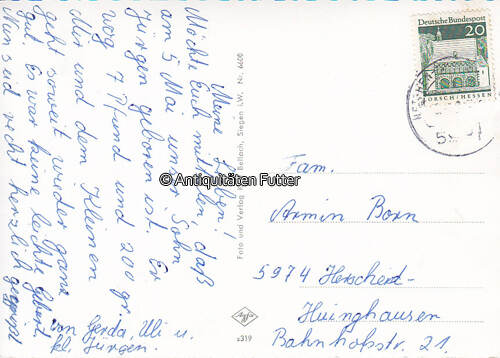 Meine Lieben!
Möchte Euch mitteilen, daß
am 5 Mai unser Sohn
Jürgen geboren ist. Er
wog 7 Pfund und 200 gr.
Mir und dem Kleinen
geht soweit wieder ganz
gut. Es war keine leichte Geburt.
Nun seid recht herzlich gegrüßt
von Gerda, Uli u.
kl. Jürgen.
Foto und Verlag Bellach, Siegen i.W. Nr. 6600
Agfa
s319
Deutsche Bundespost
20
LORSCH/HESSEN
© Antiquitäten Futter
Fam.
Armin Born
5974 Herscheid-
Hüinghausen
Bahnhofstr. 21.